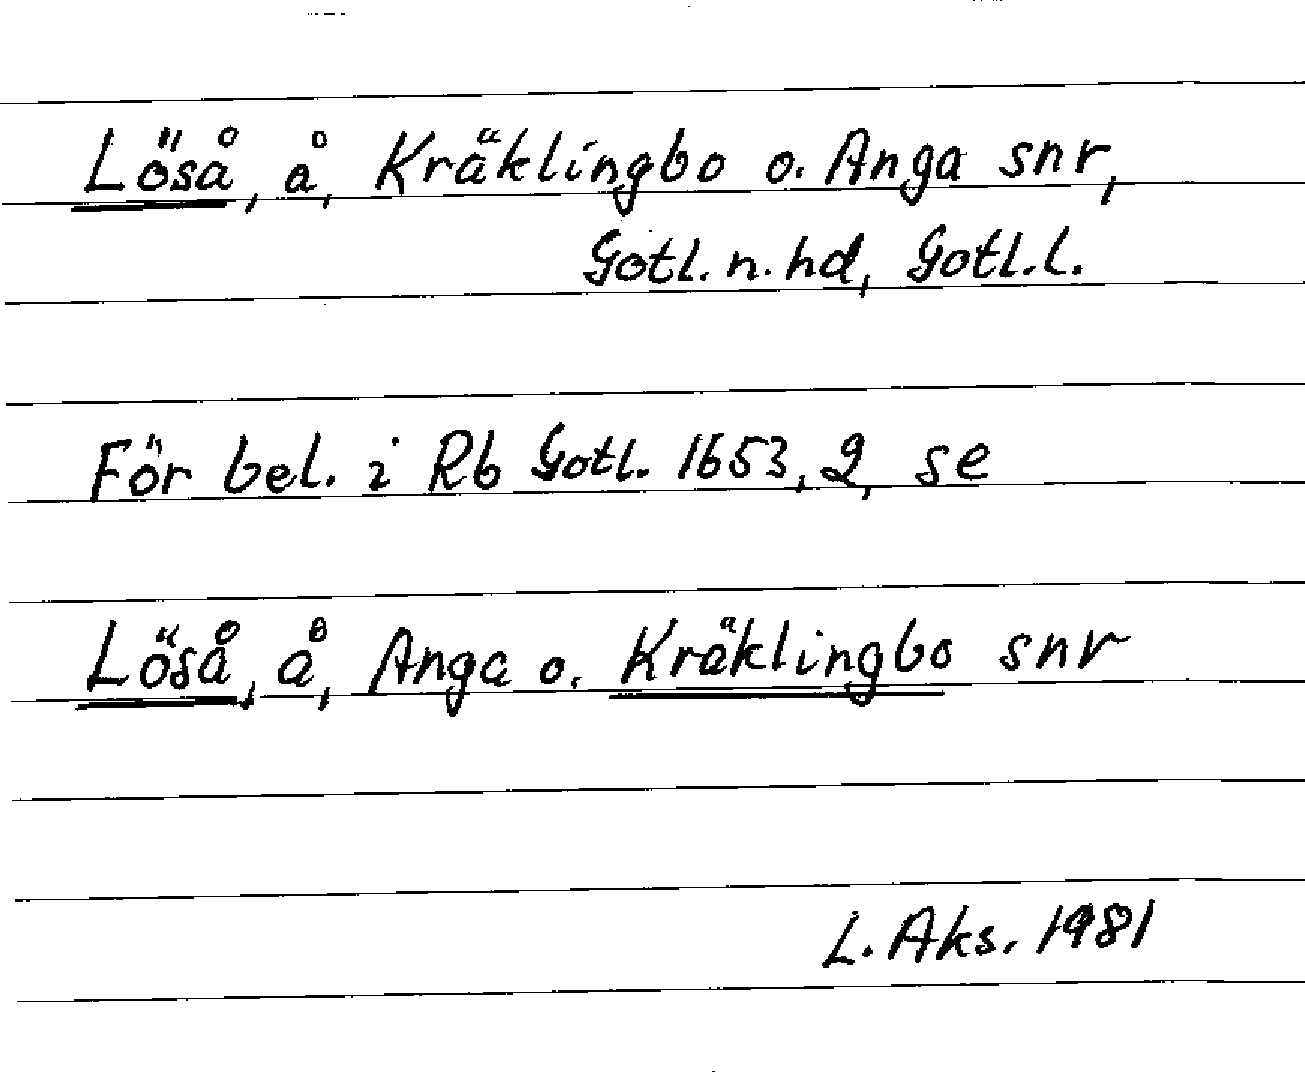 Löså, å, Kräklingbo o. Anga snr,
Gotl. n. hd, Gotl. l.
För bel. i Rb Gotl. 1653, 2, se
Löså, å, Anga o. Kräklingbo snr
L. Aks. 1981